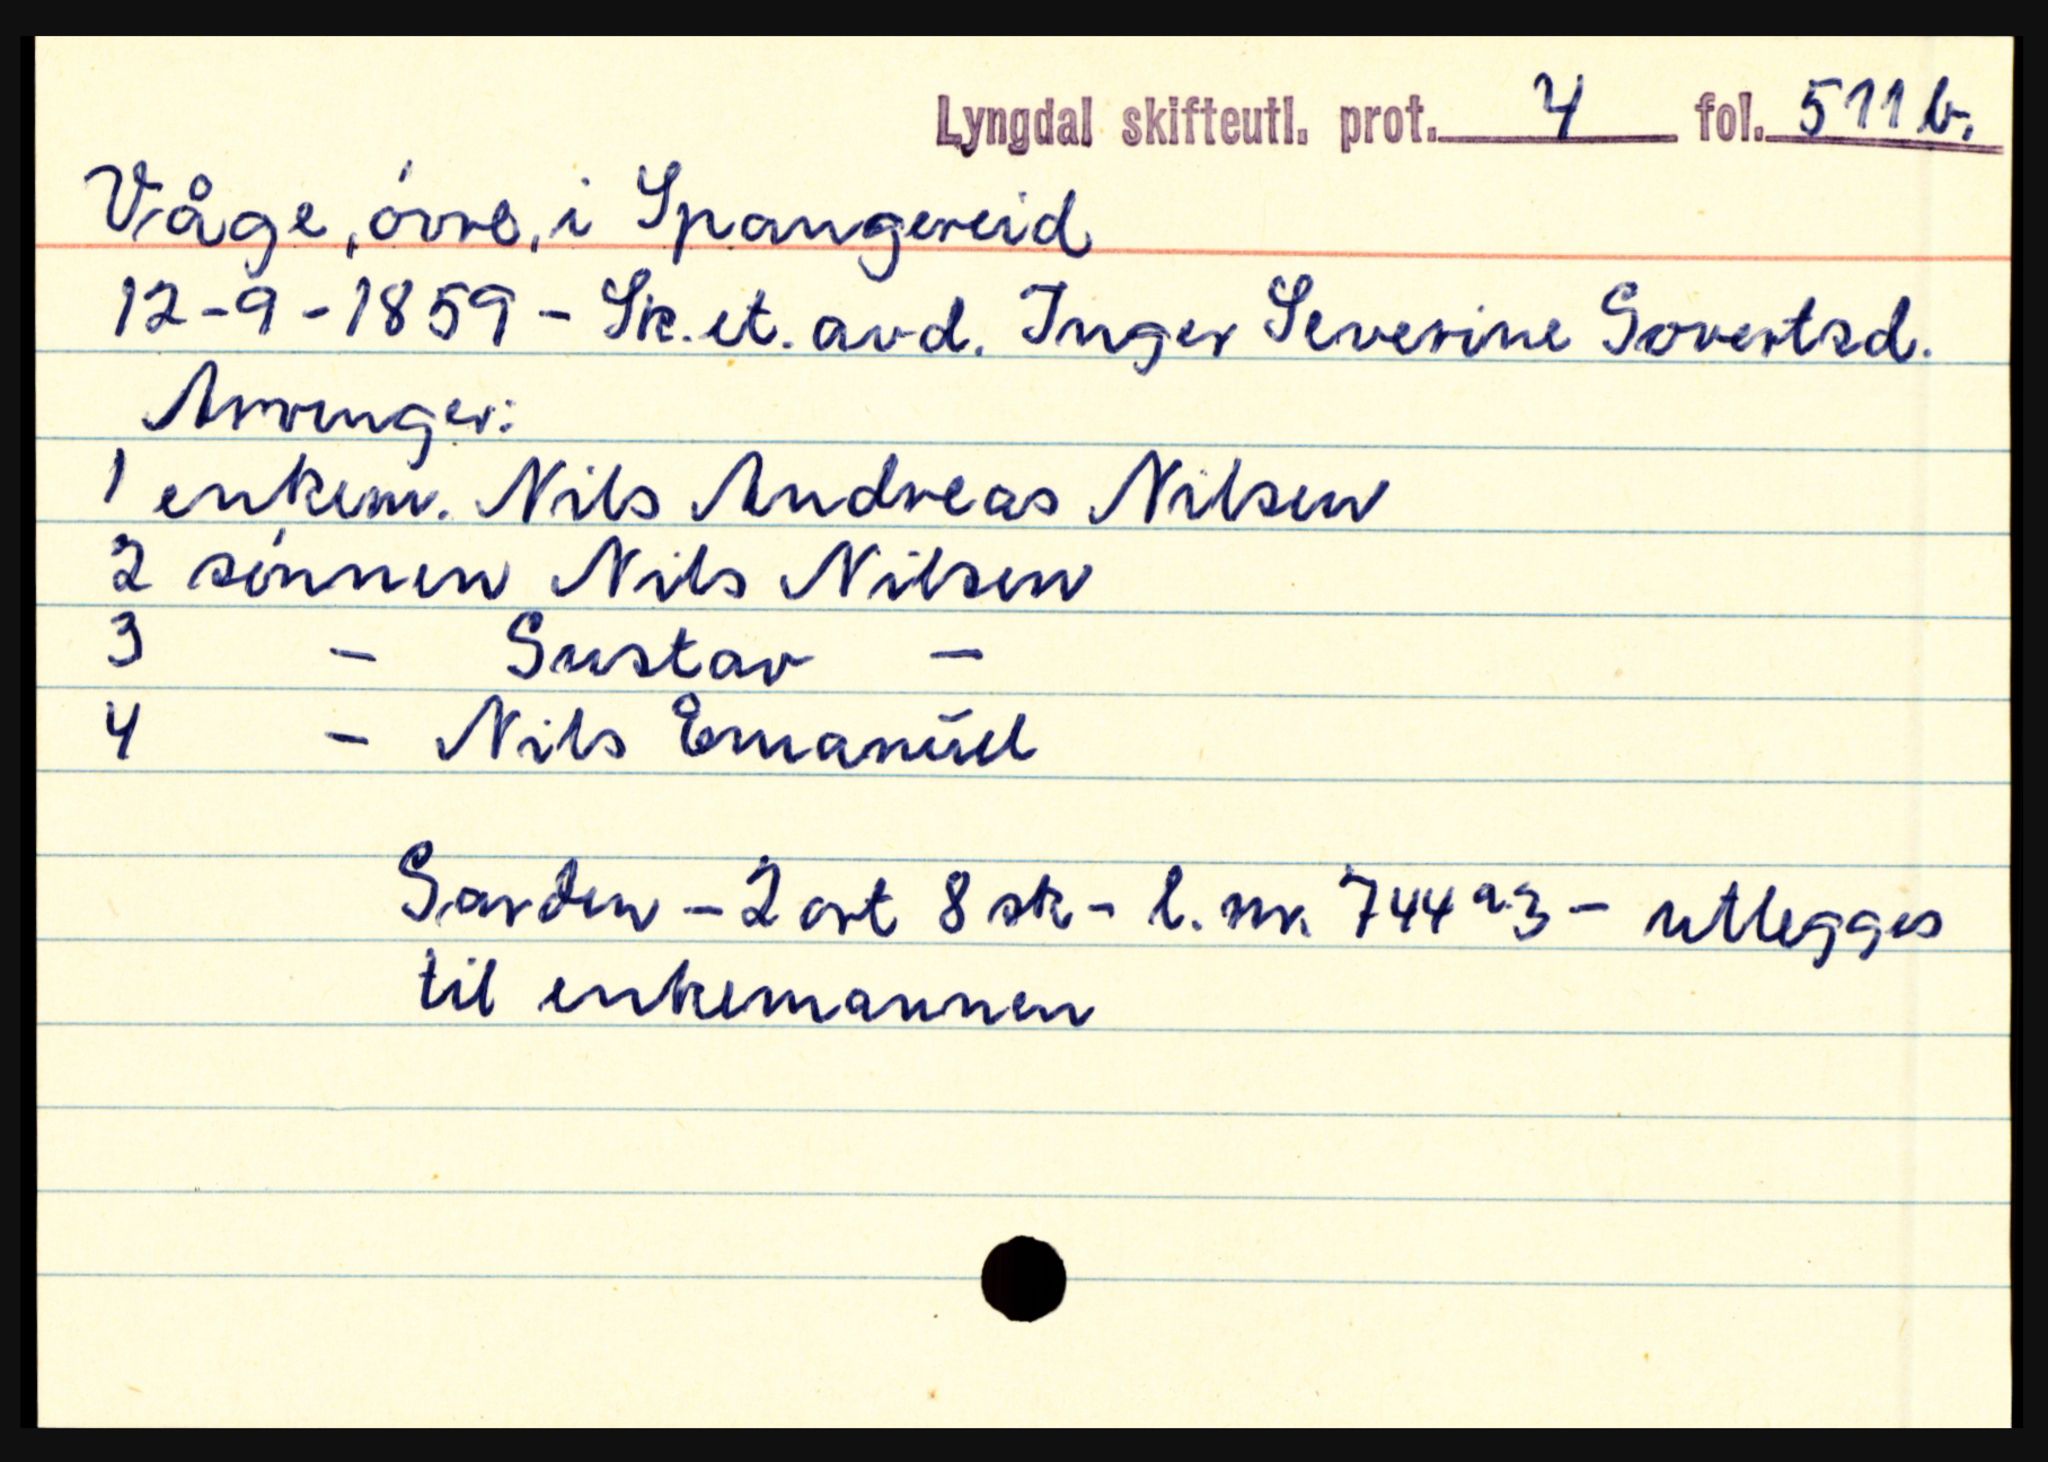 Lyngdal skifteutl. prot. 4 fol. 511 b.
Våge, óvre, i Spangereid
12-9-1859 - Sk. et. avd. Inger Severine Govertsd.
Arvinger:
1 enkem. Nils Andreas Nilsen
2 sónnen Nils Nilsen
3 - Gustav -
4 - Nils Emanuel
Garden - 2 ort 8 sk - l. nr. 744 a 3 - utlegges
til enkemannen